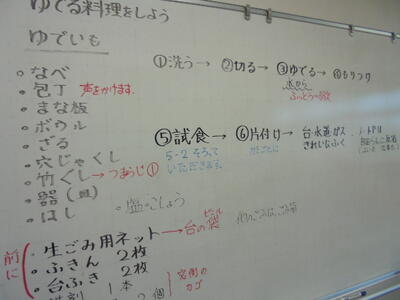 ゆでる料理をしよう
ゆでいも
①洗う→②切る→③ゆでる→④もりつけ
水から
ふっとう
・なべ
・包丁 声をかけます.
・まな板
・ボウル
・ざる
・穴じゃくし
・竹ぐし→つまようじ①
・器(皿)
・はし
・塩・こしょう
⑤試食→⑥片付け→台・水道・ガス
きれいにふく
5-2 そろって
いただきます。
前に
・生ごみ用ネット→台のビニル袋
・ふきん 2枚
・台ふき 2枚
1本
2個
窓側の
カゴ